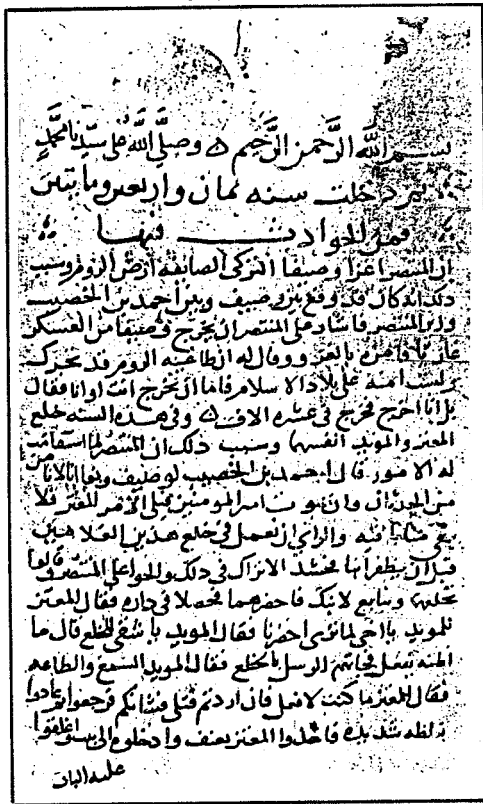 بسم الله الرحمن الرحيم ٥ وصلى الله على سيدنا محمد
ثم دخلت سنه ثمان واربعين ومايتين
فمن الحوادث فيها
ان المنتصر اغزا وصيفا التركى الصائفه ارض الروم وسبب
ذلك انه كان قد وقع بين وصيف وبين احمد بن الخصيب
وزير المنتصر فاشار على المنتصر ان يخرج وصيفا من العسكر
غازيا فامره بالغزو وقال له ان طاغيه الروم قد تحرك
ولست امنه على بلاد الاسلام فاما ان تخرج انت او انا فقال
بل انا اخرج فخرج في عشره الاف ٥ وفي هذه السنه خلع
المعتز والمويد انفسهما وسبب ذلك ان المنتصر لما استقامت
له الامور قال احمد بن الخصيب لوصيف وبغا انا لا نامن
من الحدثان وان يموت امير المومنين فيلي الامر المعتز فلا
يبقى منا باقيه والراي ان نعمل في خلع هذين الغلامين
قبل ان يظفرا بنا فجد الاتراك في ذلك والحوا على المنتصر وقالوا
نخلعهما ونبايع لابنك فاحضرهما فجعلا في دار فقال المعتز
للمويد يا اخي لم ترى احضرنا فقال المويد يا شقي للخلع قال ما
اظنه يفعل فجاتهم الرسل بالخلع فقال المويد السمع والطاعه
فقال المعتز ما كنت لافعل فان اردتم قتلي فشانكم فرجعوا ثم عادوا
بغلظه شديده فاخذوا المعتز بعنف وادخلوه الى بيت واغلقوا
عليه الباب